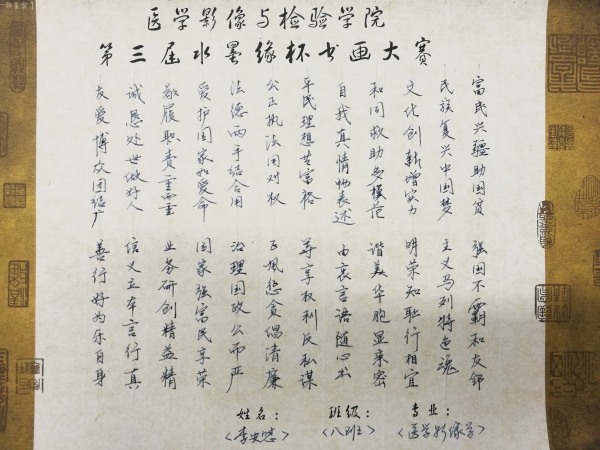 医学影像与检验学院
第三届水墨缘杯书画大赛
富民兴疆助国贸 强国不霸和友邻
民族复兴中国梦 主义马列特色魂
文化创新增实力 明荣知耻行相宜
和同救助多模范 谐美华胞显来密
自我真情畅表述 由衷言语随心出
平民理想共富裕 寻享权利反私谋
公正执法因对权 正风惩贪倡清廉
法德两手结合用 治理国政公而严
爱护国家如爱命 国家强富民享荣
敬履职责重而重 业务研创精益精
诚恳处世做好人 信义立本言行真
友爱博众团结广 善行好为乐自身
专业：
〈医学影像学〉
班级：
〈八班〉
姓名：